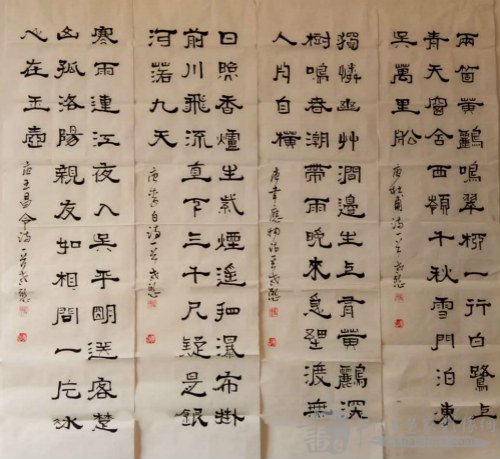 兩箇黃鸝鳴翠柳一行白鷺上
青天窗含西嶺千秋雪門泊東
吳萬里船
唐杜甫詩一首
獨憐幽艸澗邊生上有黃鸝深
樹鳴春潮帶雨晚來急野渡無
人舟自橫
唐韋應物詩一首
日照香爐生紫煙遙把瀑布掛
前川飛流直下三千尺疑是銀
河落九天
唐李白詩一首
寒雨連江夜入吳平明送客楚
山孤洛陽親友如相問一片冰
心在玉壺
唐王昌令詩一首